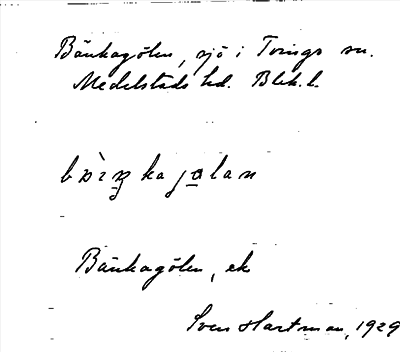 Bänkagölen, sjö i Tvings sn.
Medelstads hd. Blek. l.
Bänkagölen, ek
Sven Hartman, 1929